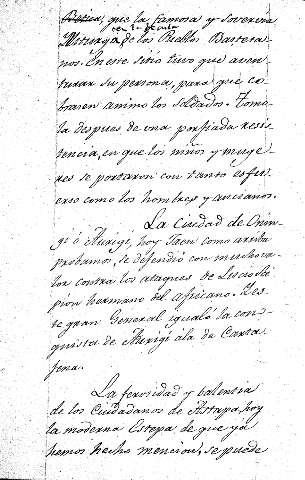 Betica, que la famosa y soverena
con la de cuita
Yliturgo de los Pueblos Bastera-
nos. En este sitio tuvo que aven-
turar su persona, para que co-
brasen animo los soldados. Tomo-
la despues de una porfiada resis-
tencia, en que los niños y muge-
res se portaron con tanto esfu-
erzo como los hombres y ancianos.
La Ciudad de Orin-
gi ó Aurigi, hoy Jaen como arriba
probamos, se defendió con mucho va-
lor contra los ataques de Lucio Sci-
pion hermano del Africano. Y es-
te gran General igualó la con-
quista de Aurigi á la de Carta-
gena.
La ferosidad y valentia
de los Ciudadanos de Astapa, hoy
la moderna Estepa de que ya
hemos hecho mencion, se puede